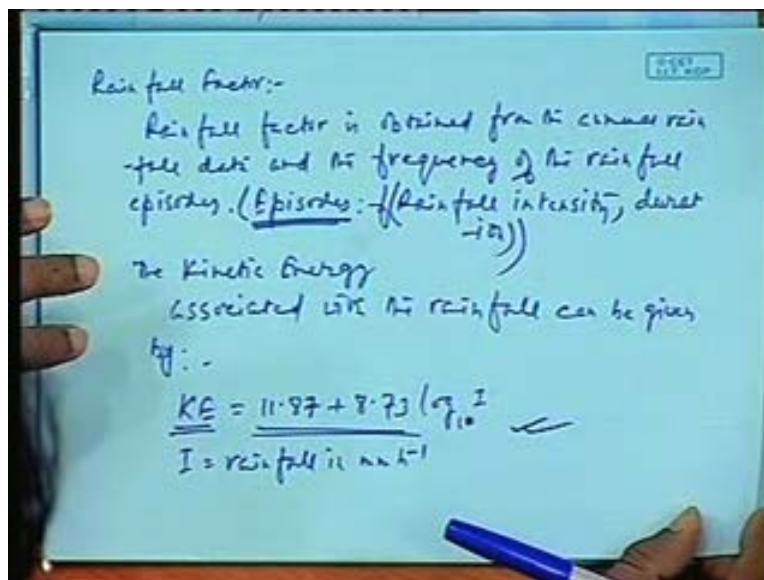 Rainfall Factor:-
Rainfall factor is obtained from the annual rain
-fall data and the frequency of the rainfall
episodes. (Episodes: f(Rainfall intensity, durat
-ion))
The Kinetic Energy
associated with the rainfall can be given
by:-
KE = 11.87 + 8.73 log₁₀ I
I = rainfall in mm h⁻¹